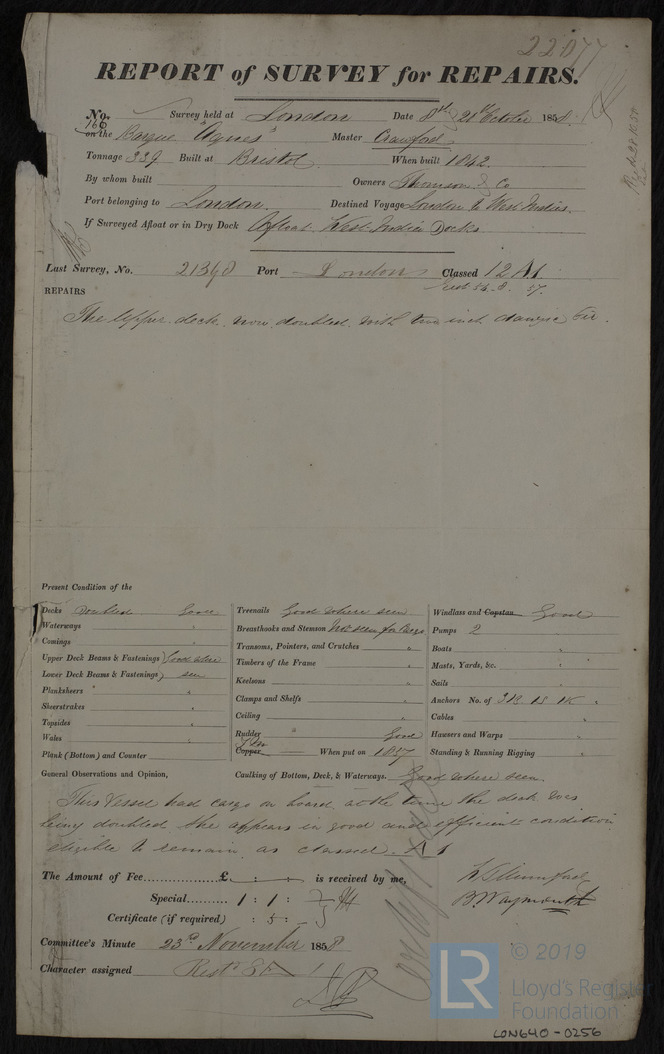 22077
REPORT of SURVEY for REPAIRS.
No. 166 Survey held at London Date 8th 21st October 1858
on the Barque "Agnes" Master Crawford
Tonnage 339 Built at Bristol When built 1842
By whom built Owners Thomson & Co
Port belonging to London Destined Voyage London to West Indies
If Surveyed Afloat or in Dry Dock Afloat West India Docks
Last Survey, No. 21398 Port London Classed 12 A1
REPAIRS
The Upper deck now doubled with two inch Fir.
Present Condition of the
Decks Doubled Good
Waterways "
Comings "
Upper Deck Beams & Fastenings } Good where
Lower Deck Beams & Fastenings } seen
Planksheers "
Sheerstrakes "
Topsides "
Wales "
Plank (Bottom) and Counter
Treenails Good where seen
Breasthooks and Stemson Not seen for Cargo
Transoms, Pointers, and Crutches "
Timbers of the Frame "
Keelsons "
Clamps and Shelfs "
Ceiling "
Rudder Good
Copper When put on 1857
Caulking of Bottom, Deck, & Waterways. Good where seen.
Windlass and Capstan Good
Pumps 2
Boats "
Masts, Yards, &c. "
Sails "
Anchors No. of 3B. 1S. 1K "
Cables "
Hawsers and Warps "
Standing & Running Rigging "
General Observations and Opinion,
This Vessel had cargo on board at the time the deck was
being doubled she appears in good and efficient condition
eligible to remain as classed A1
The Amount of Fee £ : : is received by me,
Special 1 : 1 :
Certificate (if required) : 5 :
B. Waymouth
Committee's Minute 23rd November 1858
Character assigned
© 2019
LR
Lloyd's Register
Foundation
LON640-0256